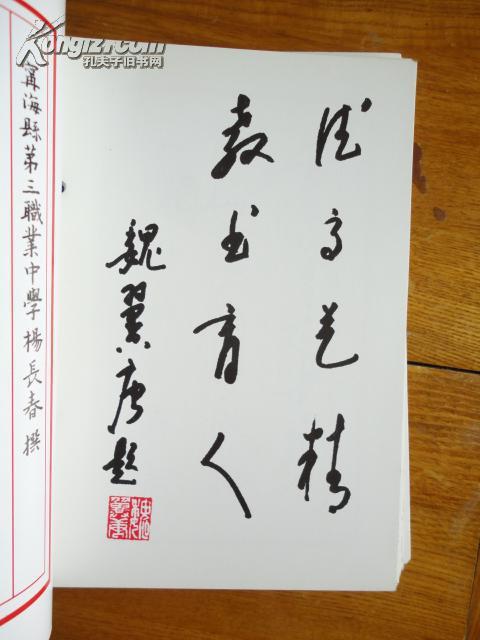 Kongfz.com
孔夫子旧书网
德高艺精
教书育人
魏翼唐题
甯海縣第三職業中學楊長春撰